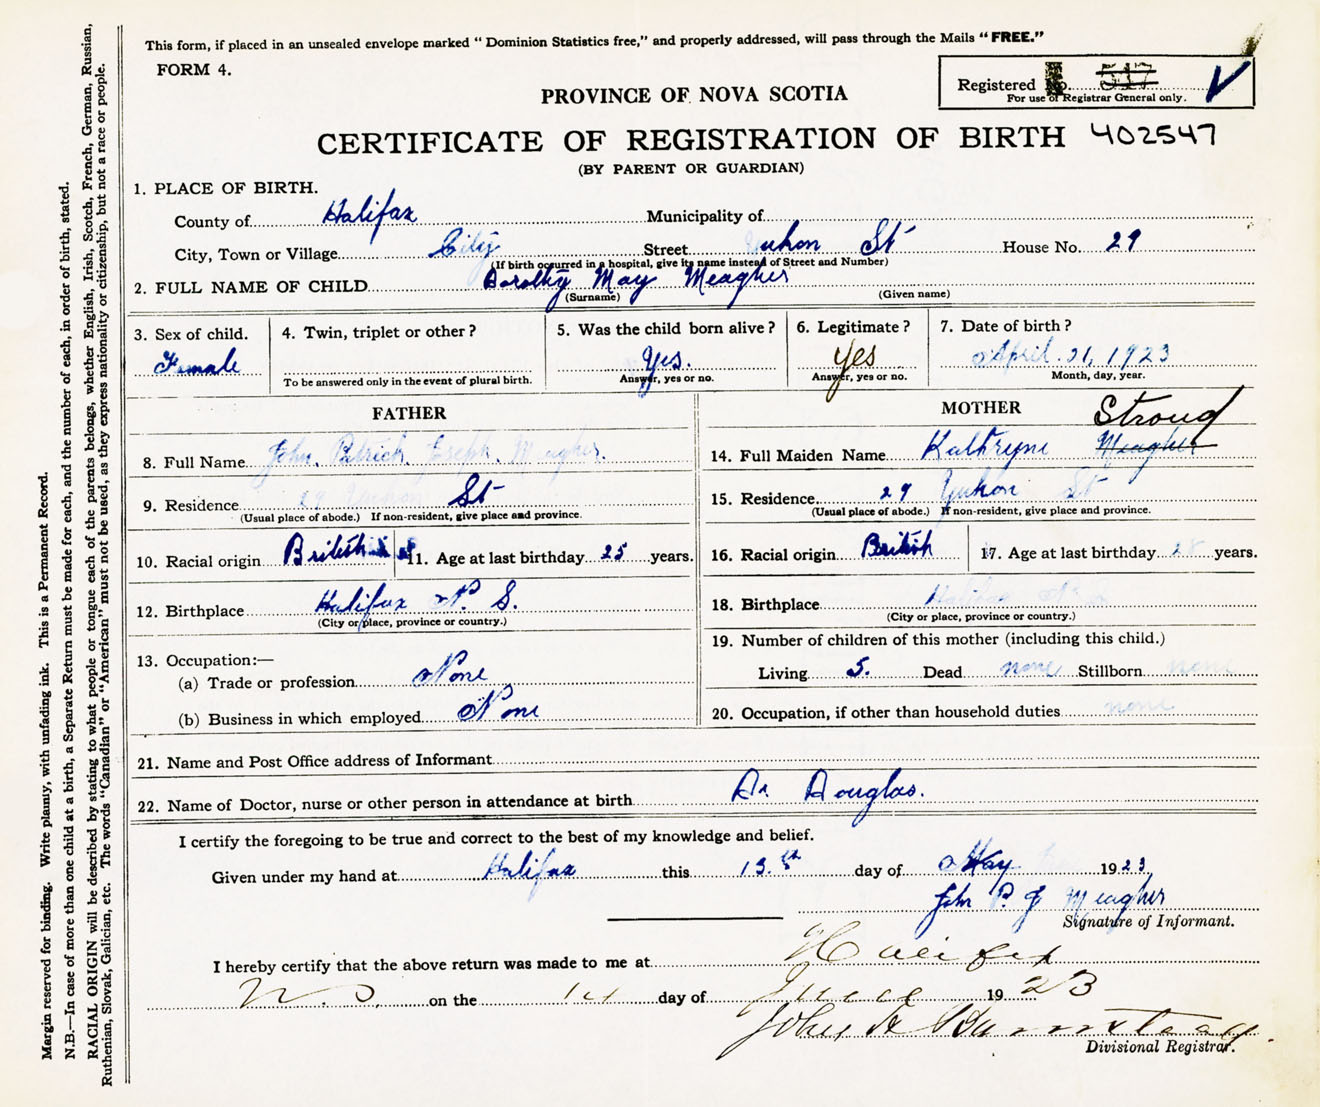 This form, if placed in an unsealed envelope marked "Dominion Statistics free," and properly addressed, will pass through the Mails "FREE."
FORM 4.
Registered No. 517
For use of Registrar General only.
PROVINCE OF NOVA SCOTIA
CERTIFICATE OF REGISTRATION OF BIRTH 402547
(BY PARENT OR GUARDIAN)
1. PLACE OF BIRTH.
County of Halifax Municipality of
City, Town or Village City Street Yukon St House No. 29
(If birth occurred in a hospital, give its name instead of Street and Number)
2. FULL NAME OF CHILD Dorothy May Meagher
(Surname) (Given name)
3. Sex of child. 4. Twin, triplet or other? 5. Was the child born alive? 6. Legitimate? 7. Date of birth?
Female Yes. Yes April 21, 1923
To be answered only in the event of plural birth. Answer, yes or no. Answer, yes or no. Month, day, year.
FATHER
8. Full Name John Patrick Joseph Meagher.
9. Residence 29 Yukon St
(Usual place of abode.) If non-resident, give place and province.
10. Racial origin British 11. Age at last birthday 25 years.
12. Birthplace Halifax N. S.
(City or place, province or country.)
13. Occupation:—
(a) Trade or profession None
(b) Business in which employed None
MOTHER
Stroud
14. Full Maiden Name Kathryne Meagher
15. Residence 29 Yukon St
(Usual place of abode.) If non-resident, give place and province.
16. Racial origin British 17. Age at last birthday years.
18. Birthplace Halifax N
(City or place, province or country.)
19. Number of children of this mother (including this child.)
Living 5. Dead none Stillborn none
20. Occupation, if other than household duties none
21. Name and Post Office address of Informant
22. Name of Doctor, nurse or other person in attendance at birth Dr Douglas.
I certify the foregoing to be true and correct to the best of my knowledge and belief.
Given under my hand at Halifax this 13.th day of May 1923
John P. J Meagher
Signature of Informant.
I hereby certify that the above return was made to me at Halifax
N.S. on the 14 day of June 1923
John A
Divisional Registrar.
Margin reserved for binding. Write plainly, with unfading ink. This is a Permanent Record.
N.B.—In case of more than one child at a birth, a Separate Return must be made for each, and the number of each, in order of birth, stated.
RACIAL ORIGIN will be described by stating to what people or tongue each of the parents belongs, whether English, Irish, Scotch, French, German, Russian,
Ruthenian, Slovak, Galician, etc. The words "Canadian" or "American" must not be used, as they express nationality or citizenship, but not a race or people.